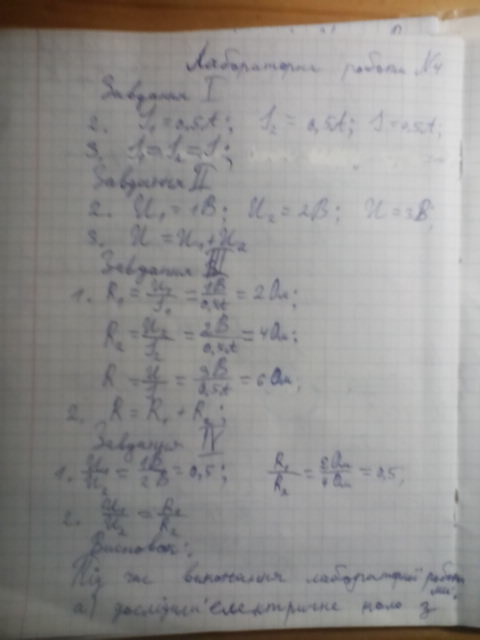 Лабораторна робота №4
Завдання I
2. I₁ = 0,5A; I₂ = 0,5A; I = 0,5A;
3. I₁ = I₂ = I;
Завдання II
2. U₁ = 1В; U₂ = 2В; U = 3В;
3. U = U₁ + U₂
Завдання III
1. R₁ = U₁/I₁ = 1В/0,5A = 2 Ом;
R₂ = U₂/I₂ = 2В/0,5A = 4 Ом;
R = U/I = 3В/0,5A = 6 Ом;
2. R = R₁ + R₂;
Завдання IV
1. U₁/U₂ = 1В/2В = 0,5; R₁/R₂ = 2Ом/4Ом = 0,5;
2. U₁/U₂ = R₁/R₂
Висновок:
Під час виконання лабораторної роботи
а) дослідили електричне коло з